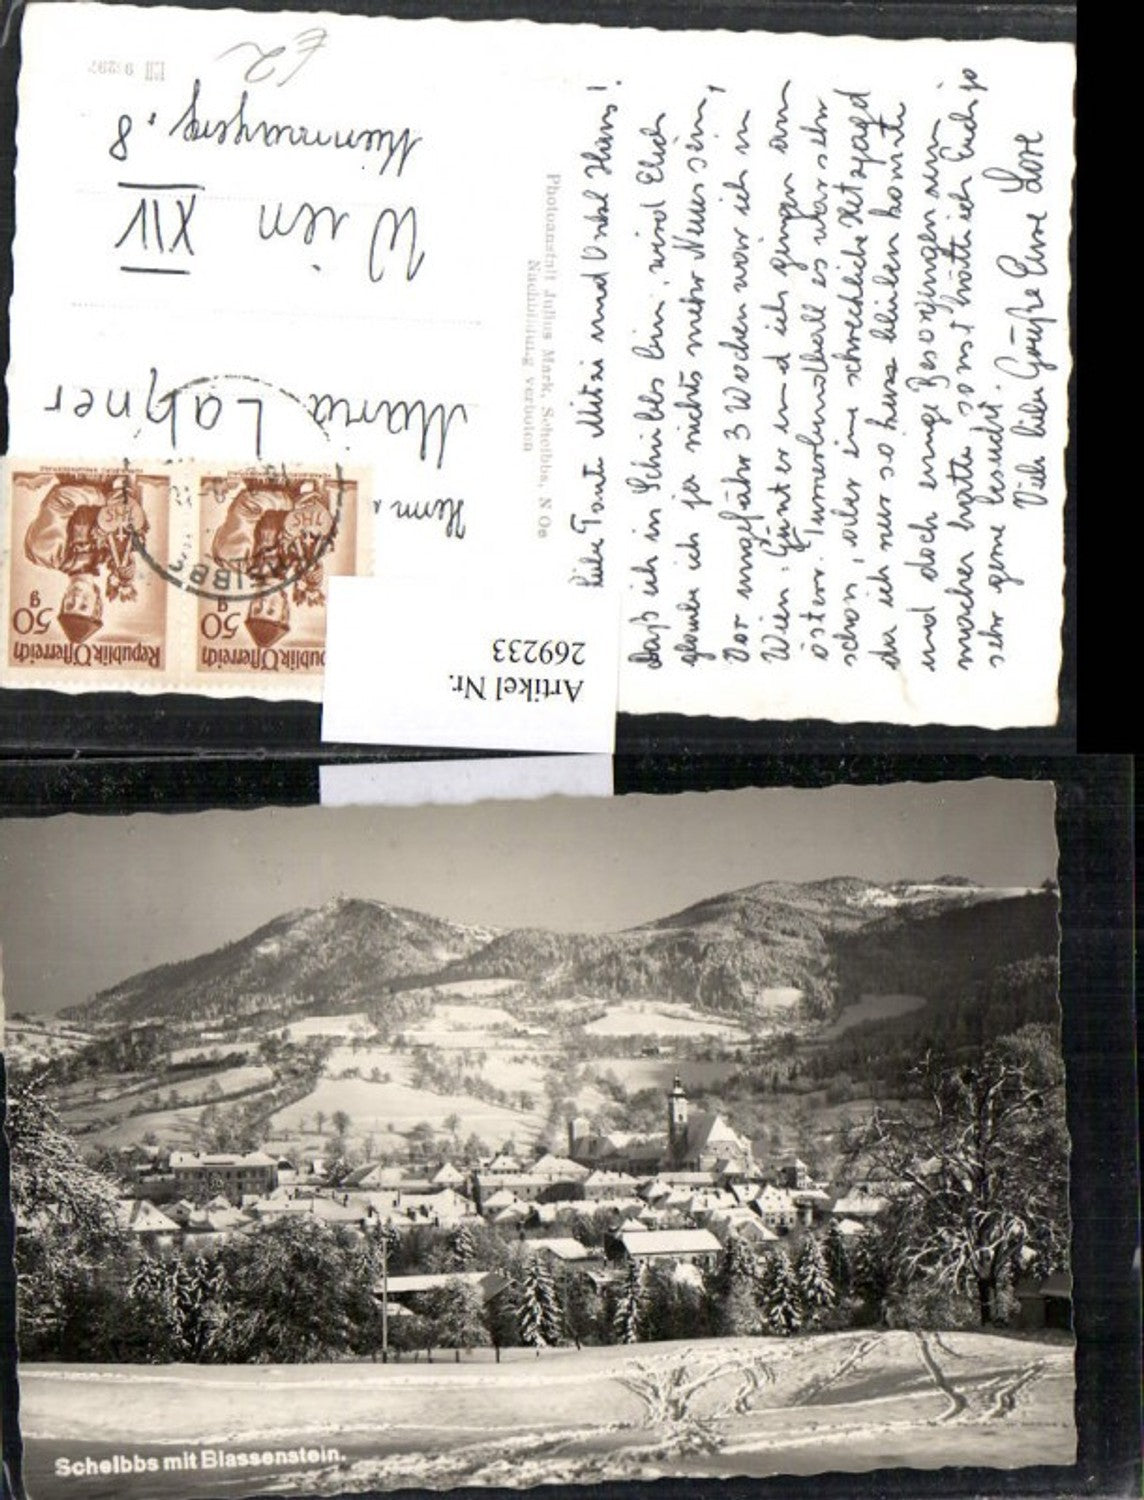 Liebe Tante Mitzi und Onkel Hans!
Daß ich in Scheibbs bin, wird Euch
glaube ich ja nichts mehr Neues sein,
Vor ungefähr 3 Wochen war ich in
Wien. Günter und ich gingen am
österr. Turnerbundball es war sehr
schön, aber eine schreckliche Hetzjagd
da ich nur so kurz bleiben konnte
und doch einige Besorgungen zum
machen hatte, sonst hätte ich Euch ja
sehr gerne besucht.
Viele liebe Grüße Eure Lore
Photoanstalt Julius Mark, Scheibbs, N Oe
Nachbildung verboten
Maria Lahner
Wien
XIV
8
€2
SCHEIBBS
Republik Österreich
50 g
Republik Österreich
50 g
Artikel Nr.
269233
Scheibbs mit Blassenstein.